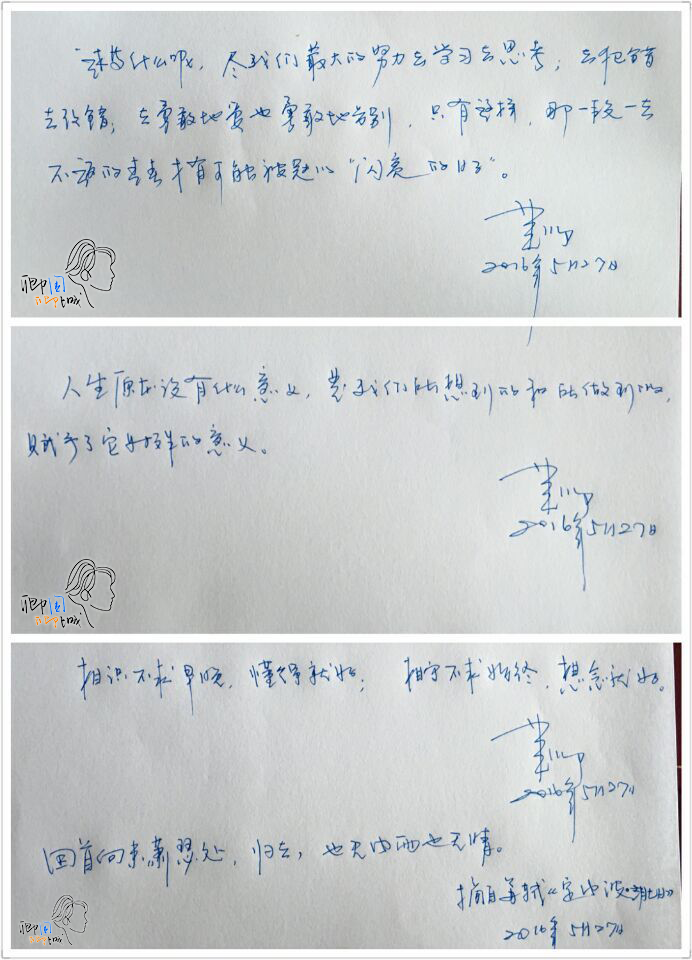 迷茫什么呢，尽我们最大的努力去学习去思考；去犯错
去改错；去勇敢地爱也勇敢地告别，只有这样，那一段一去
不返的青春才有可能被冠以“闪亮的日子”。
董卿
2016年5月27日
卿国
卿城
人生原本没有什么意义，是我们所想到的和所做到的，
赋予了它样的意义。
董卿
2016年5月27日
卿国
卿城
相识不求早晚，懂得就好；相守不求始终，想念就好。
董卿
2016年5月27日
回首向来萧瑟处，归去，也无风雨也无晴。
摘自苏轼《定风波·三月七日》
2016年5月27日
卿国
卿城